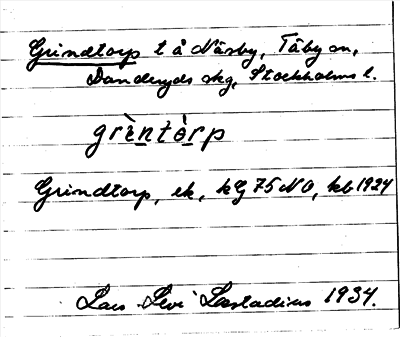 Grindtorp t å Näsby, Täby sn,
Danderyds skg, Stockholms l.
grìntòrp
Grindtorp, ek, kG 75 NO, kb 1924
Lars Levi Læstadius 1934.